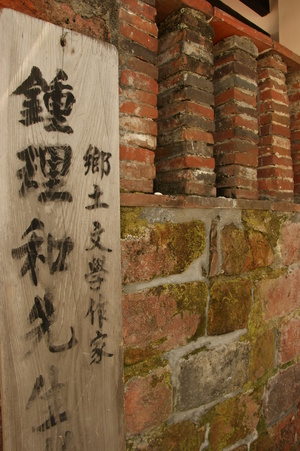 鄉土文學作家
鍾理和先生